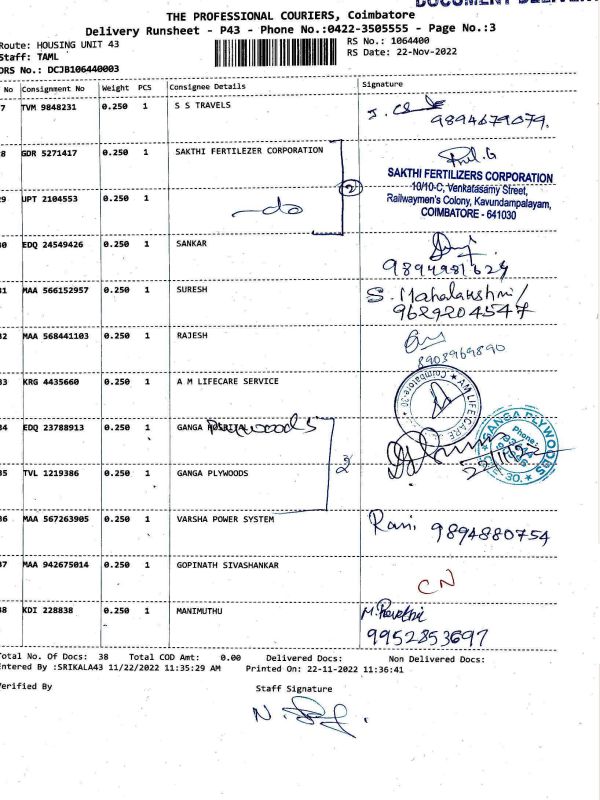 DOCUMENT DELIVER
THE PROFESSIONAL COURIERS, Coimbatore
Delivery Runsheet - P43 - Phone No.:0422-3505555 - Page No.:3
Route: HOUSING UNIT 43
RS No.: 1064400
Staff: TAML
RS Date: 22-Nov-2022
DRS No.: DCJB106440003
No Consignment No Weight PCS Consignee Details Signature
7 TVM 9848231 0.250 1 S S TRAVELS
9894679079.
8 GDR 5271417 0.250 1 SAKTHI FERTILEZER CORPORATION
SAKTHI FERTILIZERS CORPORATION
10/10-C, Venkatasamy Street,
Railwaymen's Colony, Kavundampalayam,
COIMBATORE - 641030
9 UPT 2104553 0.250 1 -do 2
0 EDQ 24549426 0.250 1 SANKAR
1 MAA 566152957 0.250 1 SURESH
S. Mahalakshmi/
9629204547
2 MAA 568441103 0.250 1 RAJESH
8903969890
3 KRG 4435660 0.250 1 A M LIFECARE SERVICE
AM LIFE CARE Coimbatore-30
4 EDQ 23788913 0.250 1 GANGA plywoods
GANGA PLYWOODS
Phone:
5 TVL 1219386 0.250 1 GANGA PLYWOODS 2
6 MAA 567263905 0.250 1 VARSHA POWER SYSTEM
Rani 9894880754
7 MAA 942675014 0.250 1 GOPINATH SIVASHANKAR
CN
8 KDI 228838 0.250 1 MANIMUTHU
M. Revathi
9952853697
Total No. Of Docs: 38 Total COD Amt: 0.00 Delivered Docs: Non Delivered Docs:
Entered By :SRIKALA43 11/22/2022 11:35:29 AM Printed On: 22-11-2022 11:36:41
Verified By
Staff Signature